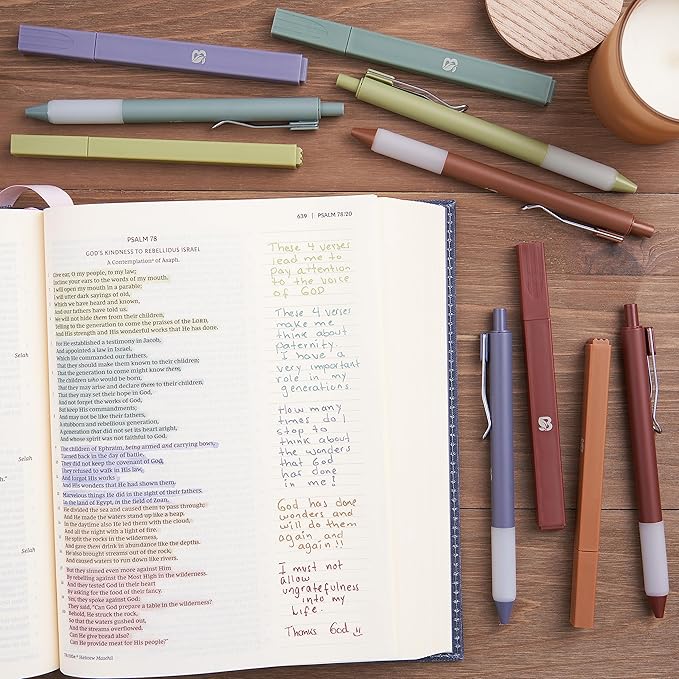 639 | PSALM 78:20
PSALM 78
GOD'S KINDNESS TO REBELLIOUS ISRAEL
A Contemplation of Asaph.
Give ear, O my people, to my law;
Incline your ears to the words of my mouth.
I will open my mouth in a parable;
I will utter dark sayings of old,
Which we have heard and known,
And our fathers have told us.
We will not hide them from their children,
Telling to the generation to come the praises of the LORD,
And His strength and His wonderful works that He has done.
For He established a testimony in Jacob,
And appointed a law in Israel,
Which He commanded our fathers,
That they should make them known to their children;
That the generation to come might know them,
The children who would be born,
That they may arise and declare them to their children,
That they may set their hope in God,
And not forget the works of God,
But keep His commandments;
And may not be like their fathers,
A stubborn and rebellious generation,
A generation that did not set its heart aright,
And whose spirit was not faithful to God.
The children of Ephraim, being armed and carrying bows,
Turned back in the day of battle.
They did not keep the covenant of God;
They refused to walk in His law,
And forgot His works
And His wonders that He had shown them.
Marvelous things He did in the sight of their fathers,
In the land of Egypt, in the field of Zoan.
He divided the sea and caused them to pass through;
And He made the waters stand up like a heap.
In the daytime also He led them with the cloud,
And all the night with a light of fire.
He split the rocks in the wilderness,
And gave them drink in abundance like the depths.
He also brought streams out of the rock,
And caused waters to run down like rivers.
But they sinned even more against Him
By rebelling against the Most High in the wilderness.
And they tested God in their heart
By asking for the food of their fancy.
Yes, they spoke against God:
They said, "Can God prepare a table in the wilderness?
Behold, He struck the rock,
So that the waters gushed out,
And the streams overflowed.
Can He give bread also?
Can He provide meat for His people?"
78:title Hebrew Maschil
These 4 verses
lead me to
pay attention
to the voice
of GOD
These 4 verses
make me
think about
paternity.
I have a
very important
role in my
generations.
How many
times do I
stop to
think about
the wonders
that God
has done
in me!
God has done
wonders and
will do them
again and
again!!
I must not
allow
ungratefulness
into my
life.
Thanks God
Selah
Selah
Selah